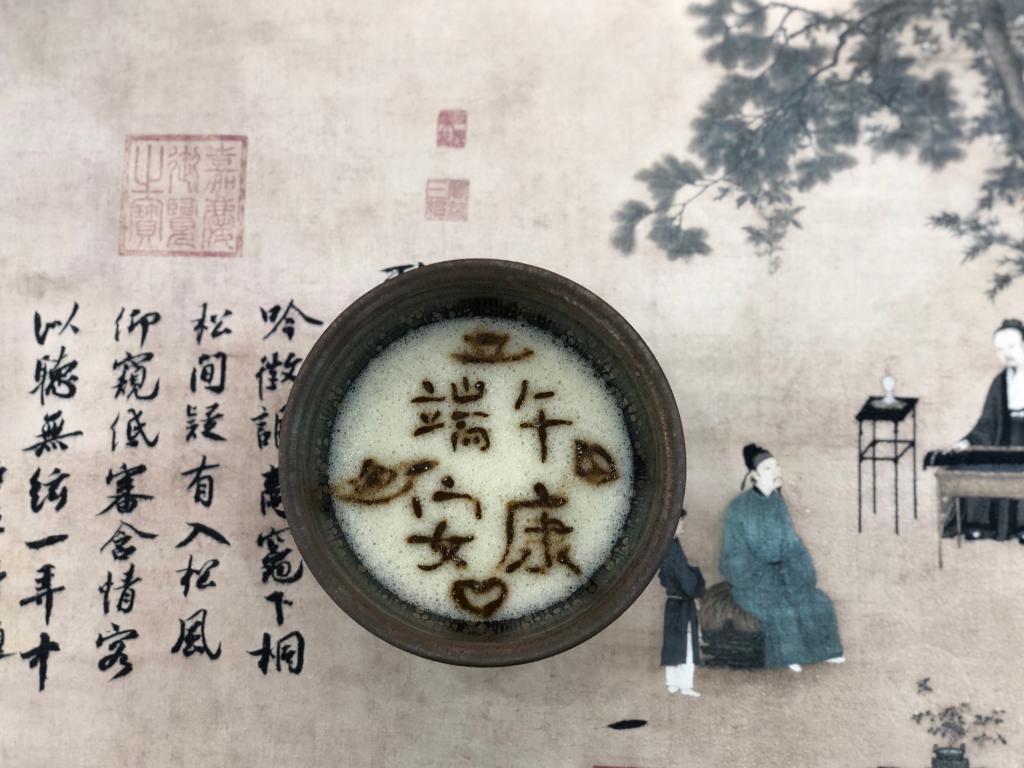 嘉慶
御覽
之寶
吟徵調商竈下桐
松間疑有入松風
仰窺低審含情客
以聽無絃一弄中
端午
安康